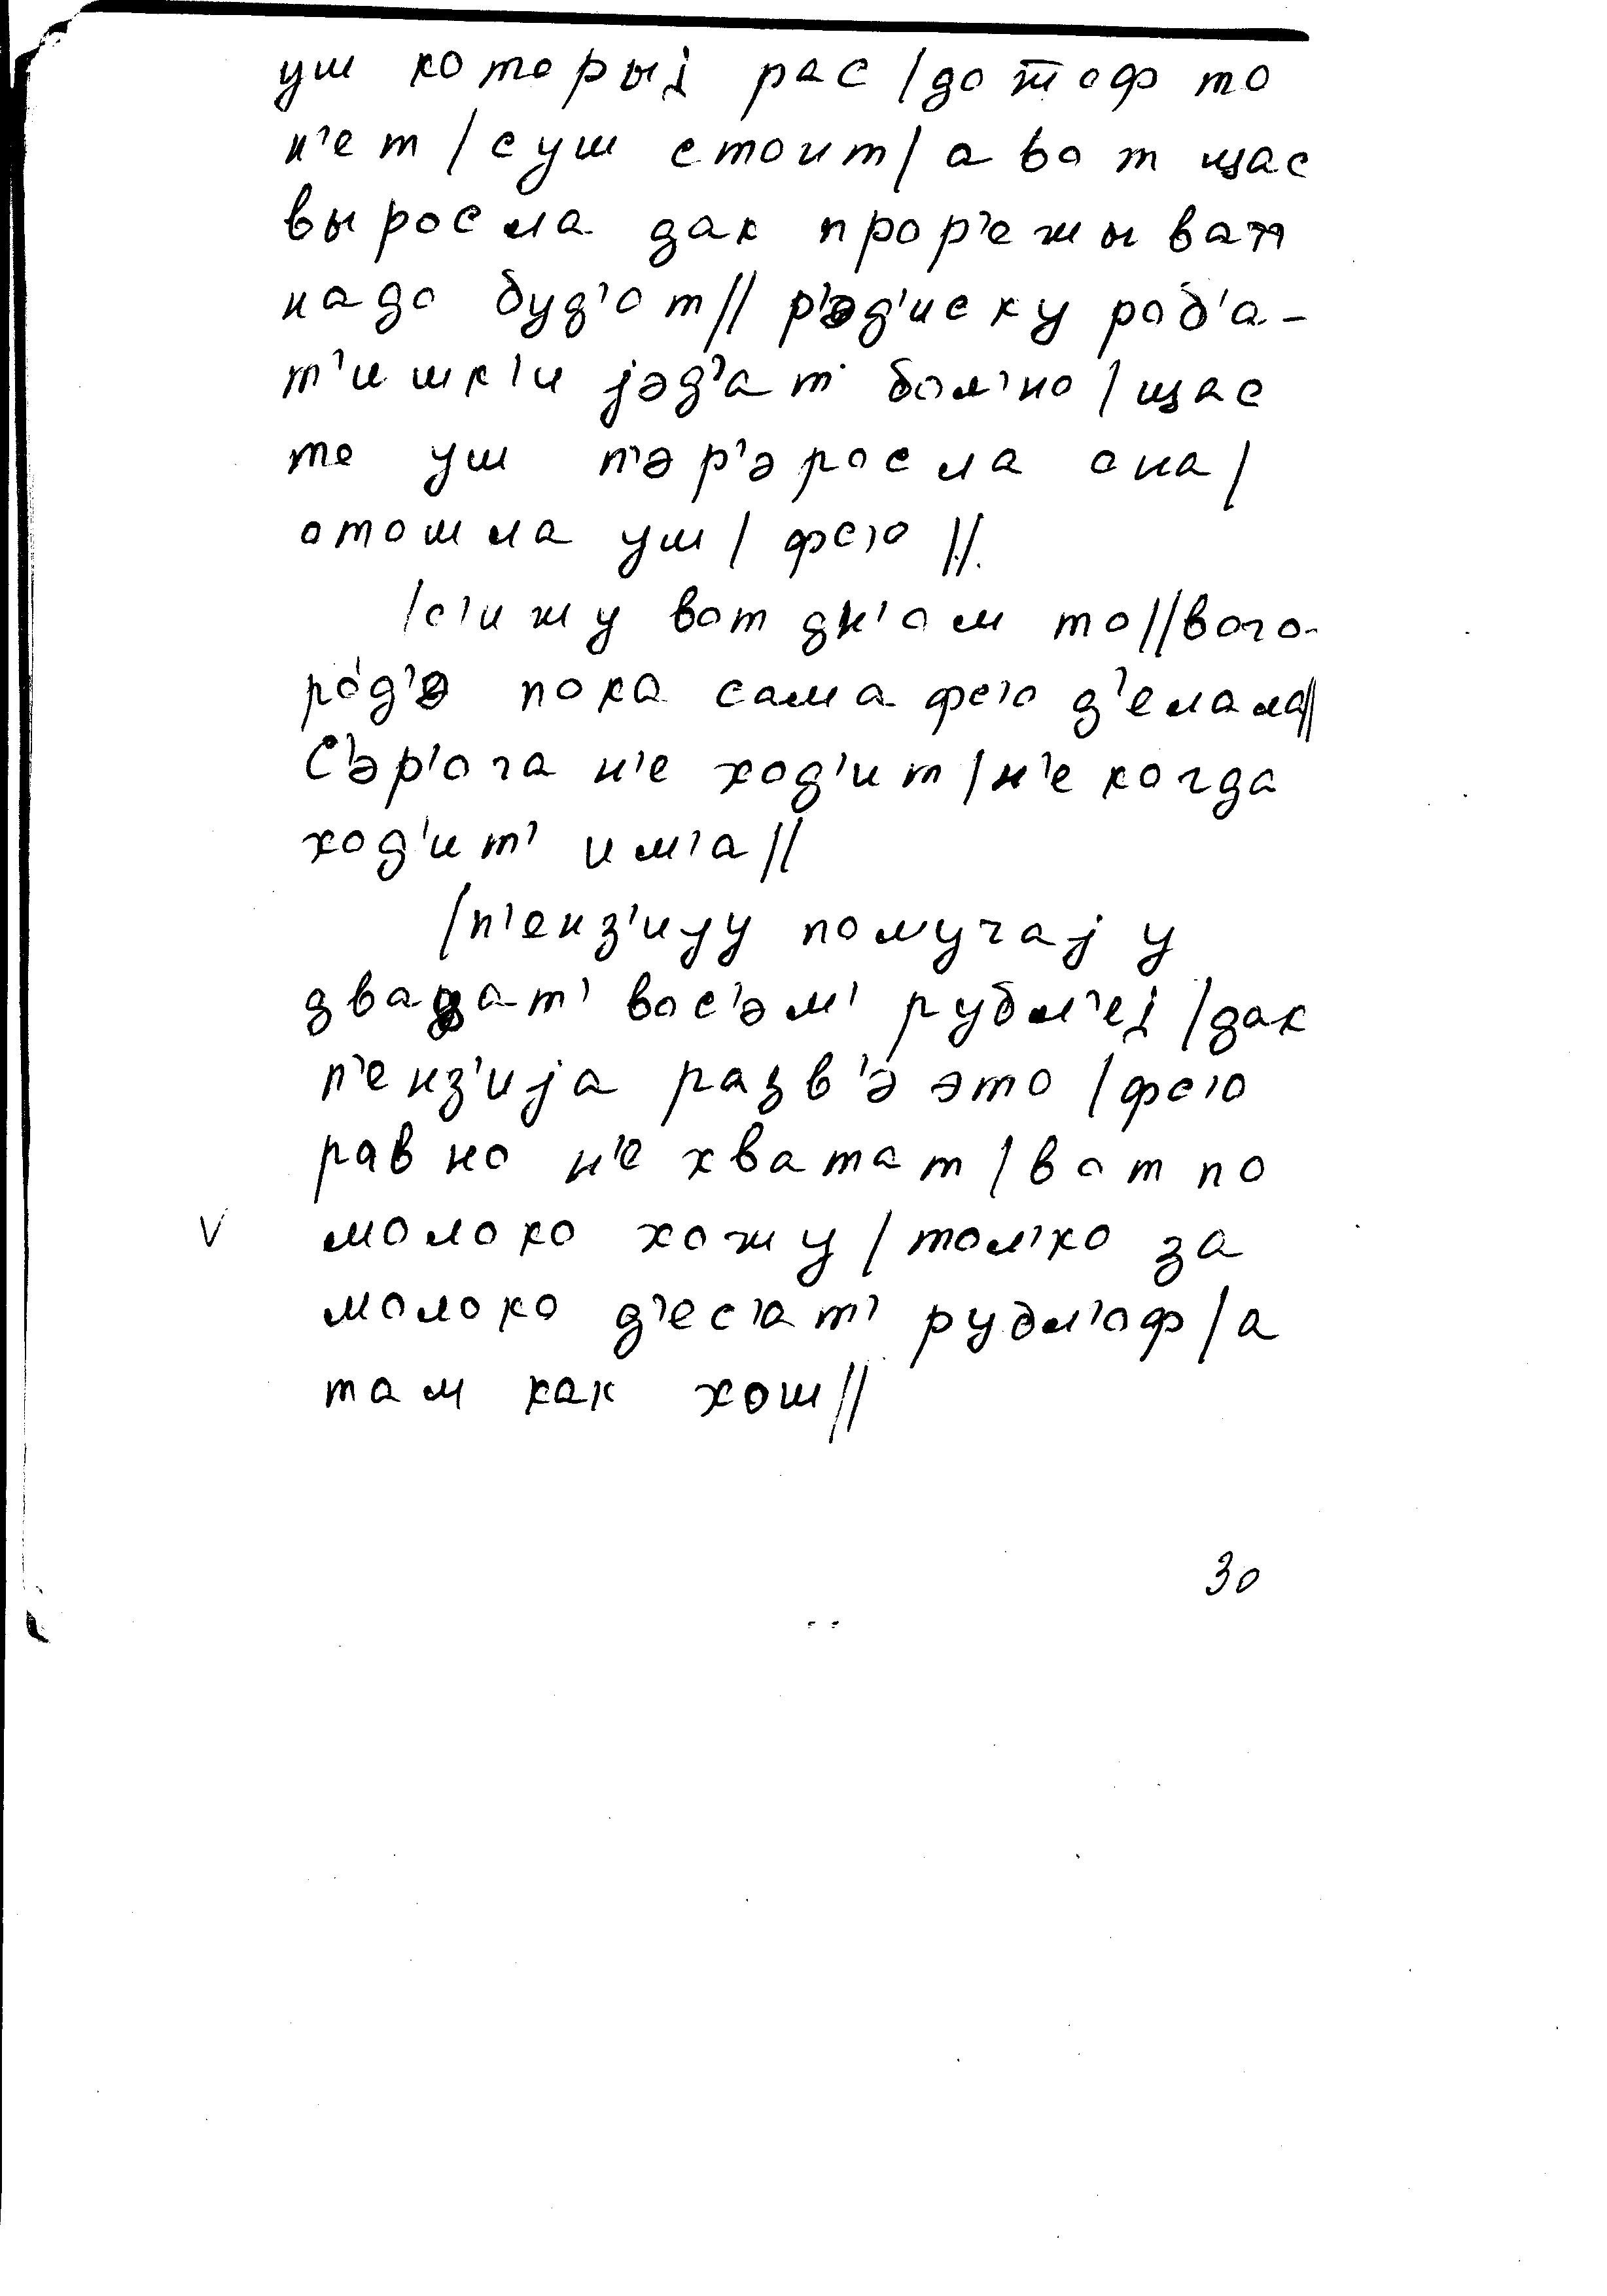 уш которыј рас /дотоф то
н'ет /суш стоит/ а вот щас
выросла дак прор'ежыват'
надо буд'от// р'эд'иску роб'а-
т'ишк'и јэд'ат бол'но /щас
то уш п'эр'эросла она/
отошла уш/ фс'о //
/с'ижу вот дн'ом то//вого-
ро́д'э пока сама фс'о д'елала//
С'эр'ога н'е ход'ит/н'екогда
ход'ит' им'а//
/п'енз'ију получају
двацат' вос'эм' рубл'еј /дак
п'енз'ија разв'э это /фс'о
равно н'е хватат/вот по
V молоко хожу/тол'ко за
молоко д'ес'ат' рубл'оф/а
там как хош//
30